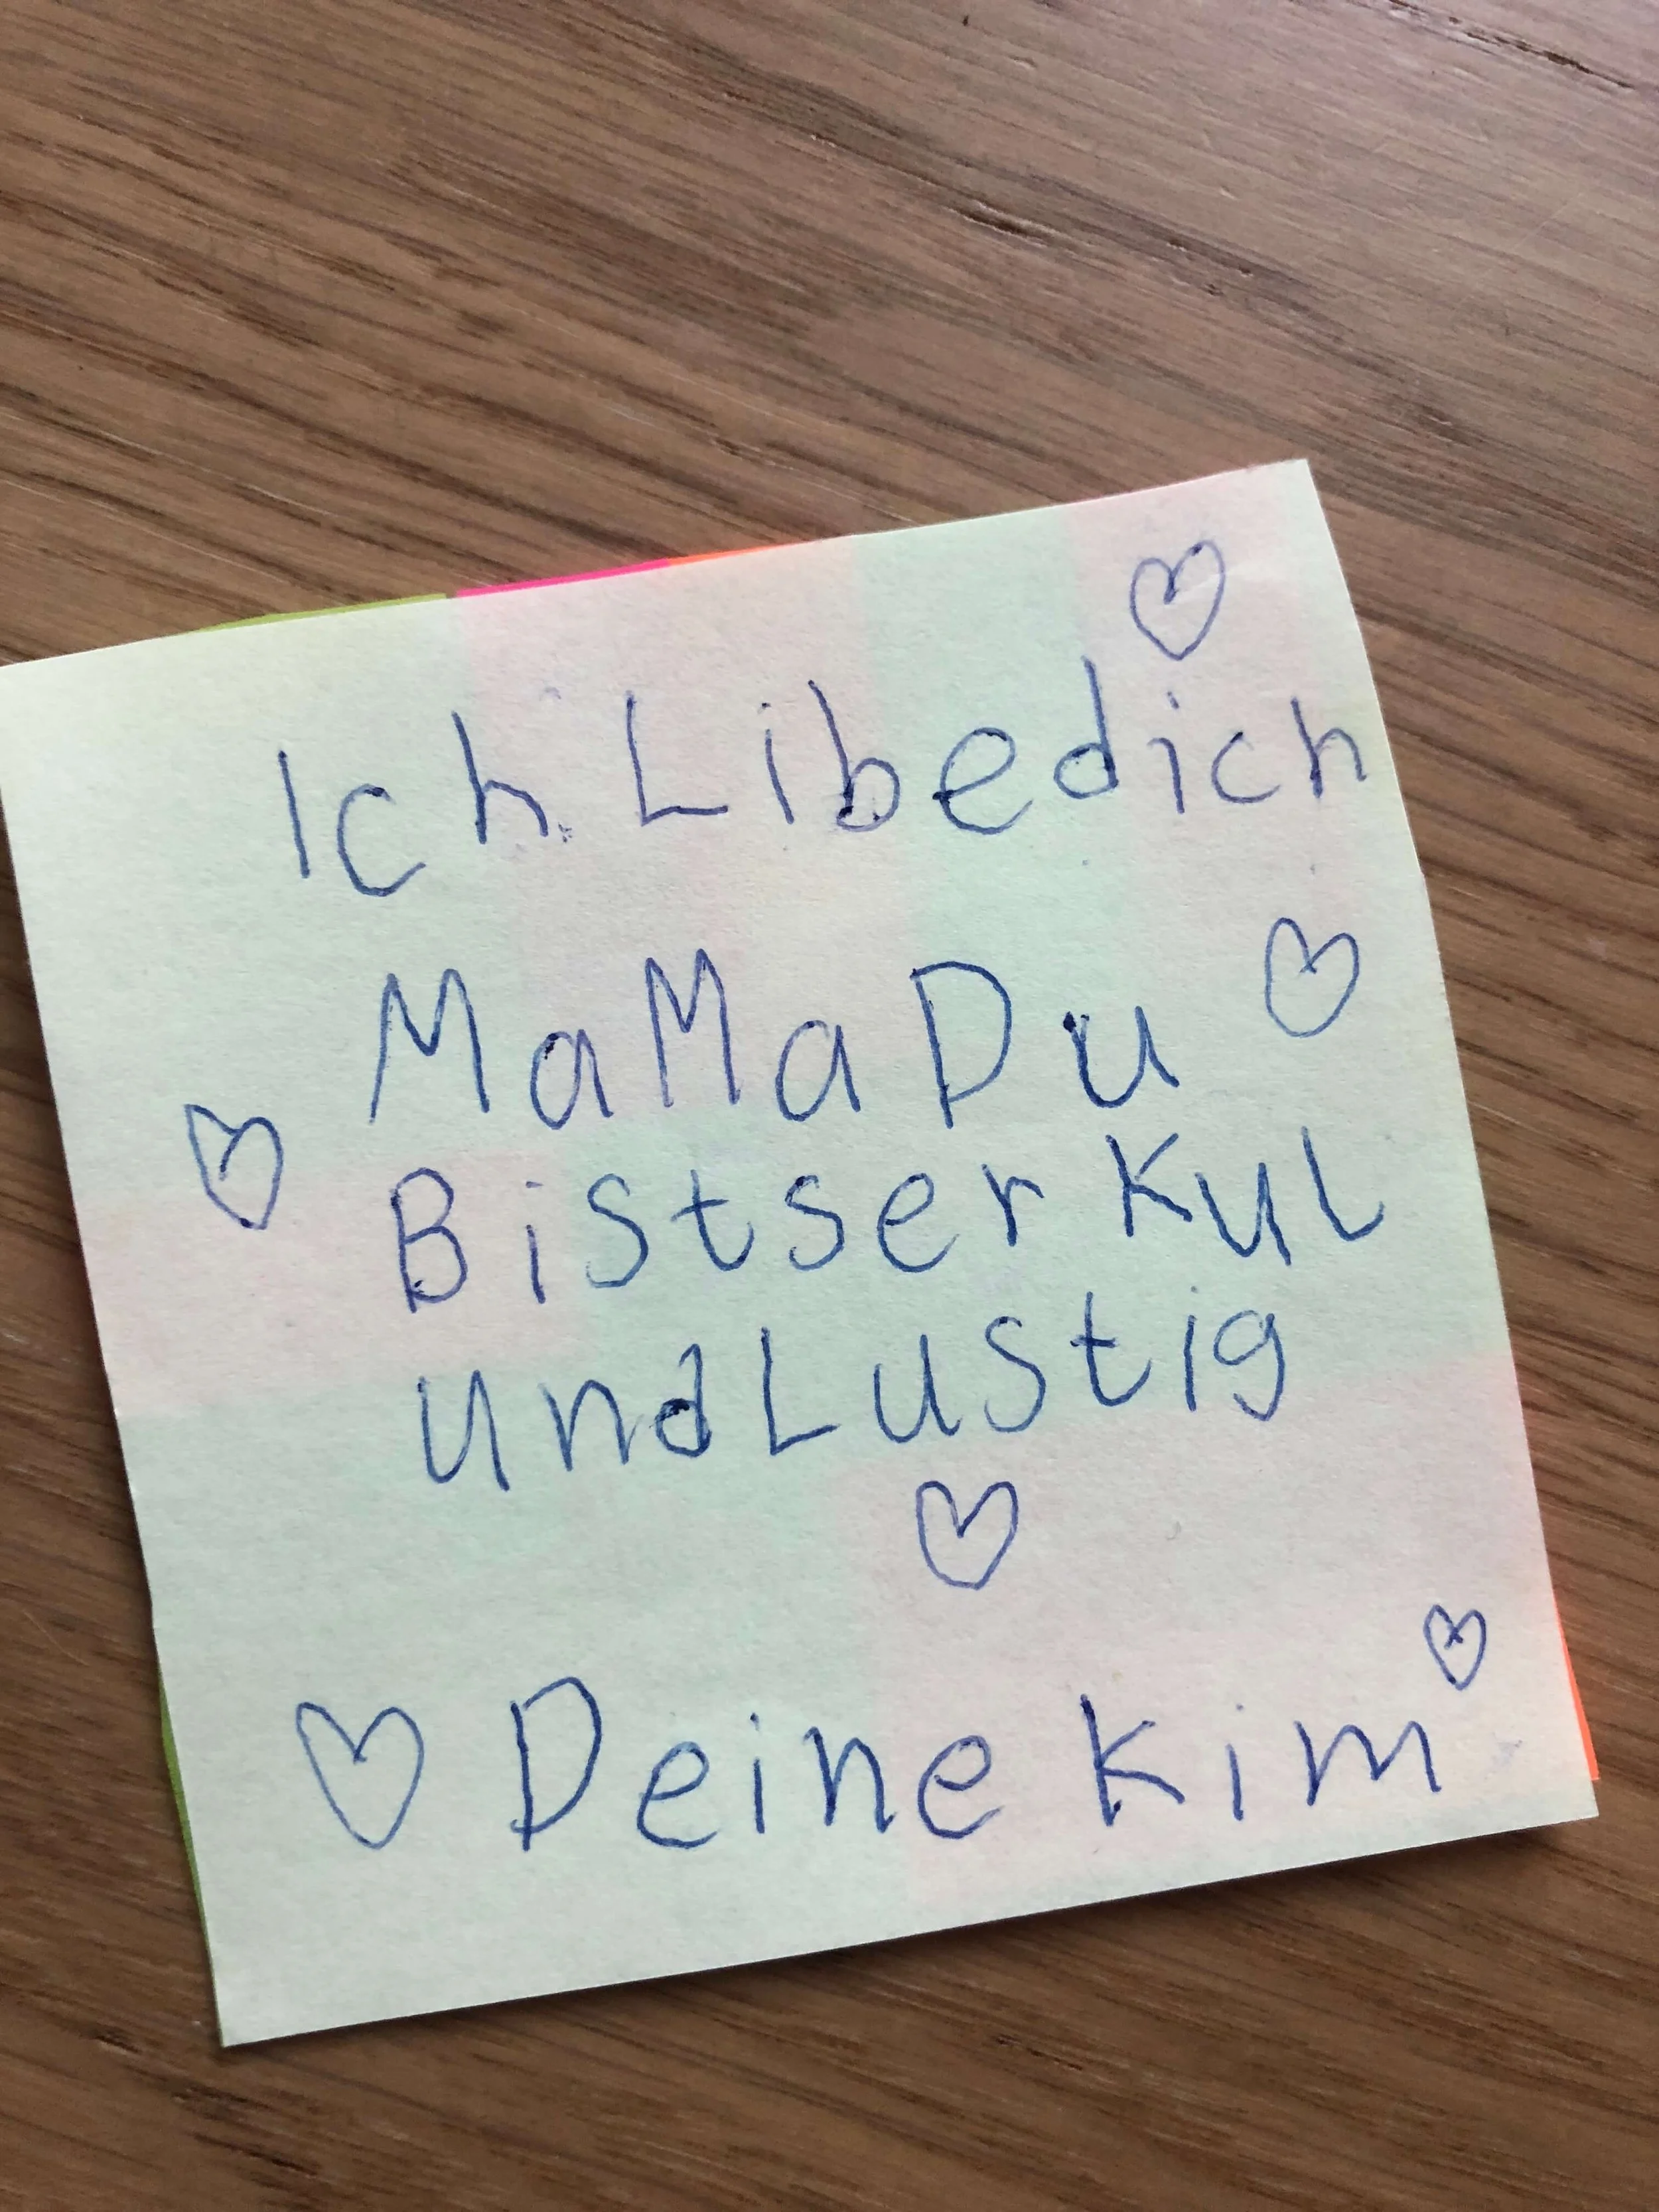 Ich Libedich
MaMa Du
Bist ser Kul
und Lustig
Deine Kim